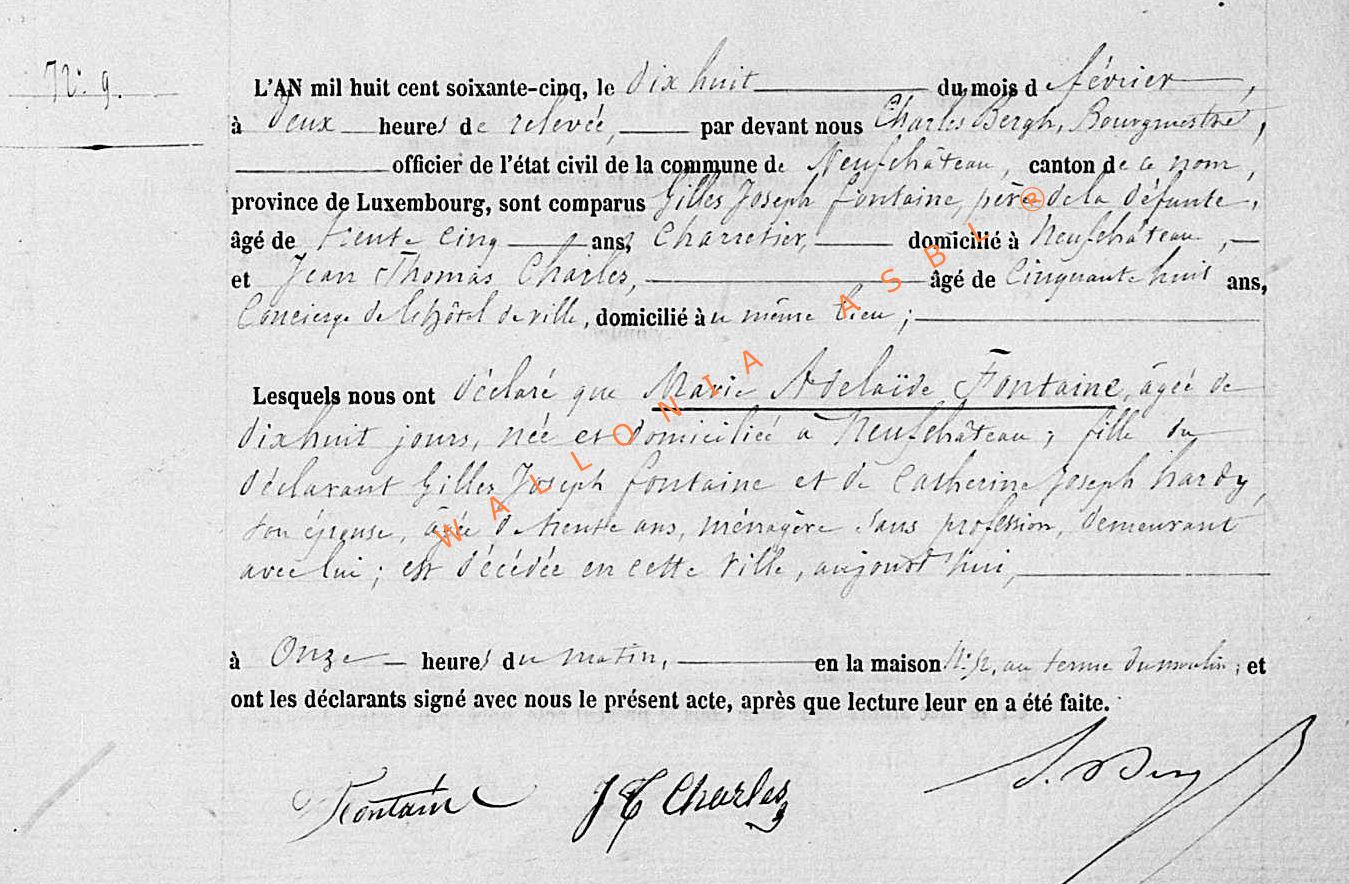 N° 9.
L'AN mil huit cent soixante-cinq, le dix huit du mois d février,
à Deux heures de relevée, par devant nous Charles Bergh, Bourgmestre,
officier de l'état civil de la commune de Neufchâteau, canton de ce nom,
province de Luxembourg, sont comparus Gilles Joseph fontaine, père de la défunte,
âgé de trente cinq ans, Charretier, domicilié à Neufchâteau,
et Jean Thomas Charles, âgé de Cinquante huit ans,
Concierge de l'hôtel de ville, domicilié au même lieu;
Lesquels nous ont déclaré que Marie Adelaïde Fontaine, âgée de
dixhuit jours, née et domiciliée à Neufchâteau; fille du
déclarant Gilles Joseph fontaine et de Catherine Joseph hardy,
son épouse, âgée de trente ans, ménagère sans profession, demeurant
avec lui; est décédée en cette ville, aujourd'hui,
à Onze heures du matin, en la maison N° au terme du moulin; et
ont les déclarants signé avec nous le présent acte, après que lecture leur en a été faite.
Fontaine JT Charles
WALLONIA ASBL ®